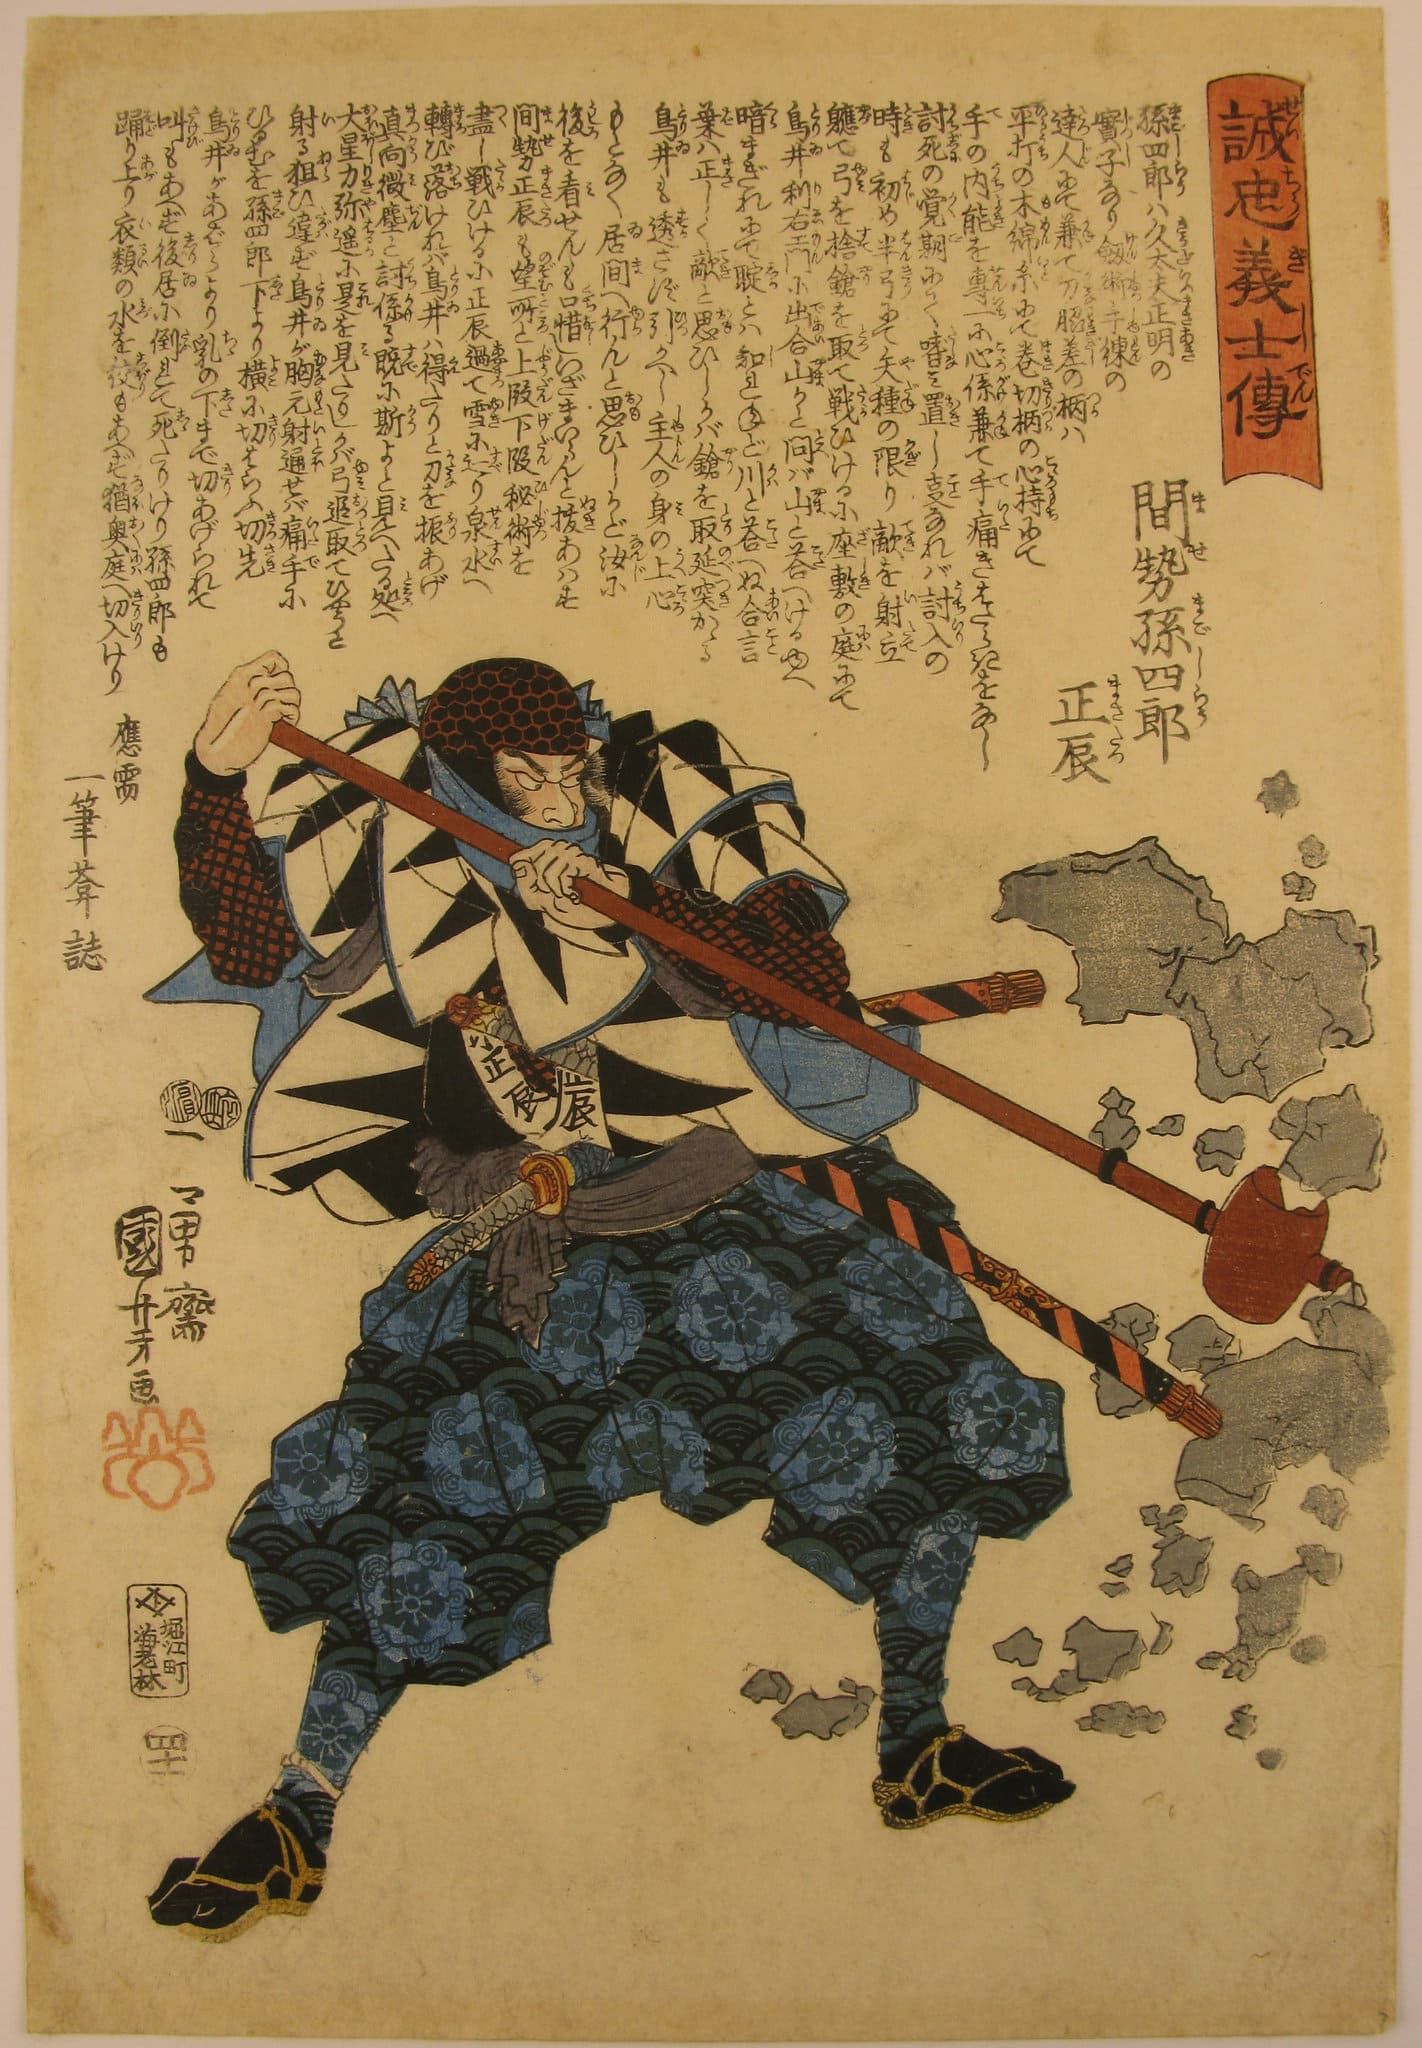 誠忠義士傳
せいちうぎしでん
間勢孫四郎
ませまごしらう
正辰
まさたつ
孫四郎ハ久太夫正明の
實子なり劔術手練の
達人にて兼て刀脇差の柄ハ
平打の木綿糸にて巻切柄の心持にて
手の内能を専一に心係兼て手痛き
討死の覚期にて
時も初め半弓にて矢種の限り敵を射立
軈て弓を捨鎗を取て戦ひける小座敷の庭にて
鳥井利右エ門に出合山かと問バ山と荅へける
暗まぎれにて聢とハ知れねど川と荅へぬ合言
葉ハ正しく敵と思ひしかバ鎗を取延突かゝる
鳥井も透さず引かへし主人の身の上心
もとなく居間へ行んと思ひしかど汝に
後を看せんも口惜いざまいらんと抜あハせ
間勢正辰も望所と上段下段秘術を
盡し戦ひける小正辰過て雪にすべり泉水へ
轉び落けれバ鳥井ハ得たりと刀を振あげ
真向微塵と討係る既に斯よと見へたる処へ
大星力弥遥に是を見たりしがバ弓追取てひやうど
射る狙ひ違ず鳥井が胸元射通せバ痛手に
ひるむを孫四郎下より横に切はらふ切先
鳥井があばらより乳の下まで切あげられて
叫もあへず後居に倒れて死たりけり孫四郎も
踊り上り衣類の水を絞もあへず猶奥庭へ切入けり
應需
一筆菴誌
正辰
一勇齋
國芳画
堀江町
海老林
四十